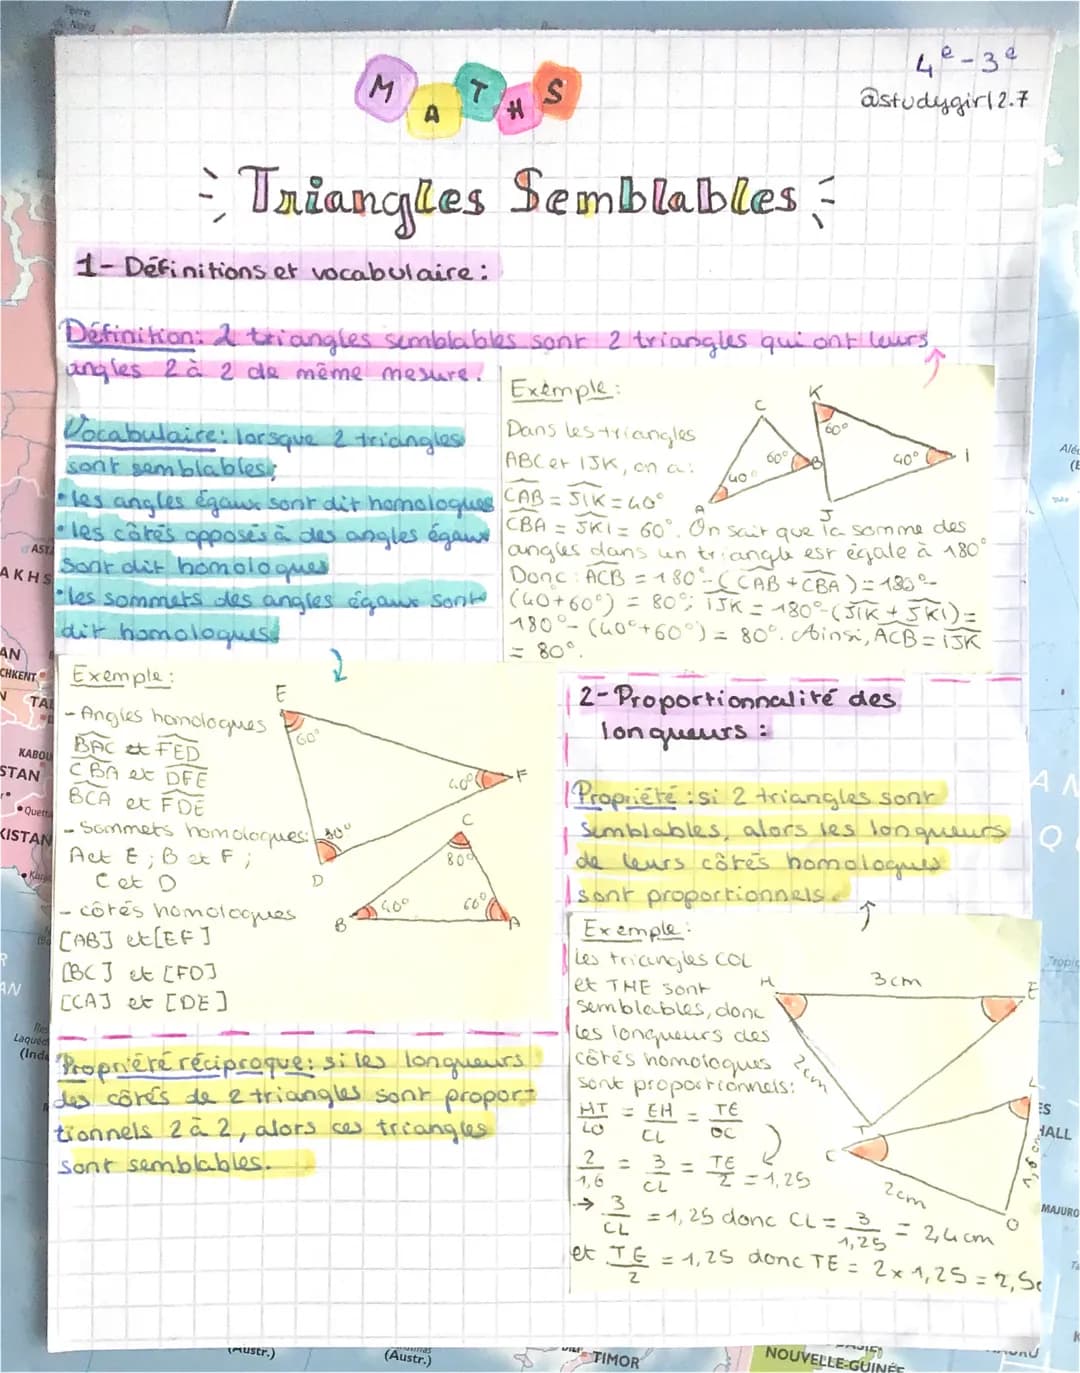 4e-3e
@studygirl2.7
MATHS
Triangles Semblables
1- Définitions et vocabulaire :
Définition: 2 triangles semblables sont 2 triangles qui ont leurs
angles 2 à 2 de même mesure!
Vocabulaire: lorsque 2 triangles
sont semblables;
• les angles égaux sont dit homologues
• les côtés opposés à des angles égaux
sont dit homologues
• les sommets des angles égaux sont
dit homologues
Exemple:
Dans les triangles
ABC et IJK, on a:
CAB = JIK = 40°
CBA = JKI = 60°. On sait que la somme des
angles dans un triangle est égale à 180°
Donc: ACB = 180°-(CAB + CBA) = 180°-
(40+60°) = 80°; IJK = 180°-(JIK + JKI) =
180°-(40°+60°) = 80°. Ainsi, ACB = IJK
= 80°.
C
K
60°
60°
B
40°
I
40°
A
J
Exemple:
- Angles homologues
BAC et FED
CBA et DFE
BCA et FDE
- Sommets homologues:
A et E; B et F;
C et D
- côtés homologues
[AB] et [EF]
[BC] et [FD]
[CA] et [DE]
E
60°
40°
F
80°
D
C
80°
B
40°
60°
A
Propriété réciproque: si les longueurs
des côtés de 2 triangles sont propor-
tionnels 2 à 2, alors ces triangles
sont semblables.
2- Proportionnalité des
longueurs :
Propriété: si 2 triangles sont
semblables, alors les longueurs
de leurs côtés homologues
sont proportionnels.
Exemple:
Les triangles COL
et THE sont
semblables, donc
les longueurs des
côtés homologues
sont proportionnels:
HT/LO = EH/CL = TE/OC
2/1,6 = 3/CL = TE/2 = 1,25
→ 3/CL = 1,25 donc CL = 3/1,25 = 2,4 cm
et TE/2 = 1,25 donc TE = 2 x 1,25 = 2,5c
H
3cm
E
2cm
T
L
C
2cm
O
Terre
du Nord
AN
CHKENT
TA
KABOU
STAN
Quetta
KISTAN
AKHS
AST
AN
Laqued
(Inde
(Austr.)
(Austr.)
TIMOR
NOUVELLE-GUINÉE
MAJURO
HALL
ES
Tropic
AN
Q